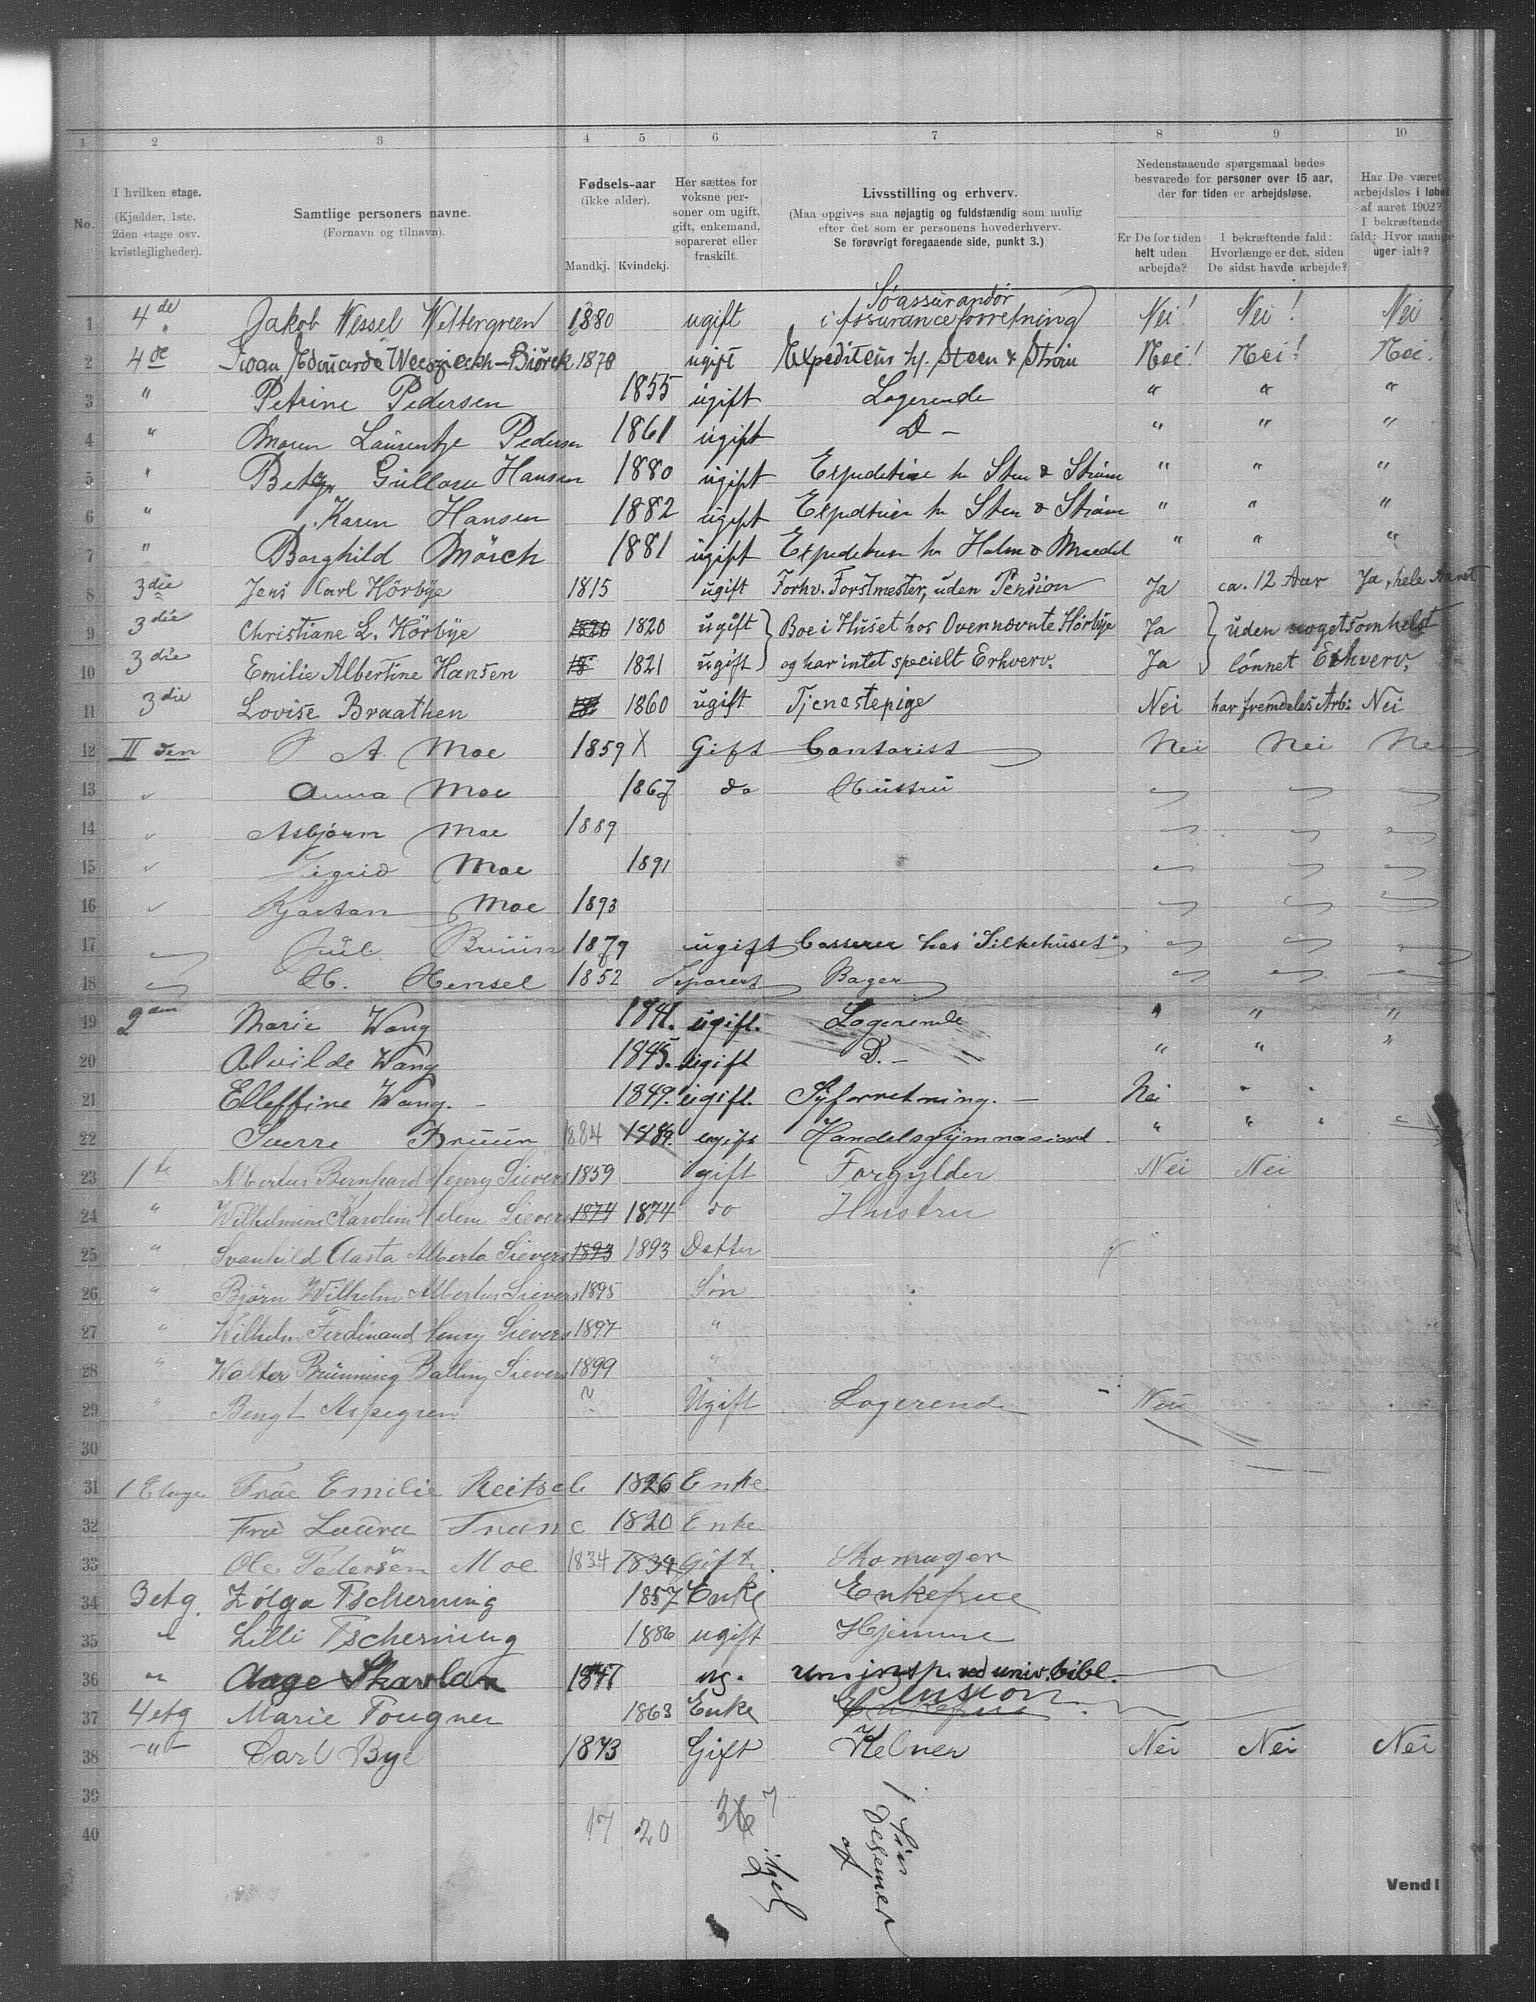 1 2 3 4 5 6 7 8 9 10
No.
I hvilken etage.
(Kjælder, 1ste.
2den etage osv.
kvistlejligheder).
Samtlige personers navne.
(Fornavn og tilnavn).
Fødsels-aar
(ikke alder).
Mandkj. Kvindekj.
Her sættes for
voksne per-
soner om ugift,
gift, enkemand,
separeret eller
fraskilt.
Livsstilling og erhverv.
(Maa opgives saa nøjagtig og fuldstændig som mulig
efter det som er personens hovederhverv.
Se forøvrigt foregaaende side, punkt 3.)
Nedenstaaende spørgsmaal bedes
besvarede for personer over 15 aar,
der for tiden er arbejdsløse.
Er De for tiden
helt uden
arbejde?
I bekræftende fald:
Hvorlænge er det, siden
De sidst havde arbejde?
Har De været
arbejdsløs i løbet
af aaret 1902?
I bekræftende
fald: Hvor mange
uger ialt?
Søassurandør
1 4de Jakob Wessel Wettergreen 1880 ugift i Assuranceforretning Nei! Nei! Nei!
2 4de 1878 ugift Expediteur h/. Steen & Strøm Nei! Nei! Nei!
3 " Petrine Pedersen 1855 ugift Logerende " " "
4 " Maren Laurentze Pedersen 1861 ugift D - " " "
5 " Hansen 1880 ugift Sten & Strøm " " "
6 " Karen Hansen 1882 ugift Sten & Strøm " " "
7 " Borghild Mörch 1881 ugift Holm & " " "
8 3die Jens Carl Hörbye 1815 ugift Forhv. Forstmester, uden Pension Ja ca. 12 Aar Ja, hele Aaret
9 3die Christiane L. Hörbye 1820 1820 ugift Boe i Huset hos Ovennævnte Hörbye Ja uden nogetsomhelst
10 3die Emilie Albertine Hansen 18 1821 ugift og har intet specielt Erhverv. Ja lønnet Erhverv.
11 3die Lovise Braathen 1860 ugift Tjenestepige Nei har fremdeles Arb: Nei
12 II den P A Moe 1859 X Gift Contorist Nei Nei Nei
13 Anna Moe 1867 do Hustru
14 Asbjørn Moe 1889
15 Sigrid Moe 1891
16 Kjartan Moe 1893
17 Jul. Bruun 1879 ugift Casserer hos "Silkehuset"
18 H. Hensel 1852 Separert Bager
19 2den Marie Wang 1841. ugift. Logerende " " "
20 Alvilde Wang 1845. ugift D. - " " "
21 Elleffine Wang. - 1849. ugift. Syforretning. - Nei
22 Sverre Bruun 1884 ugift Handelsgymnasiast " "
23 1te Albertus Bernhard Henry Sievers 1859 gift Forgylder Nei Nei
24 " Wilhelmine Karolin Helene Sievers 1874 1874 do Hustru
25 " Svanhild Aasta Alberta Sievers 1893 1893 Datter
26 " Bjørn Wilhelm Albertus Sievers 1895 Søn
27 " Wilhelm Ferdinand Henry Sievers 1897 "
28 " Walter Brünning Balling Sievers 1899 "
29 " Bengt Aspegren ? Ugift Logerende Nei
30
31 1 Etage Frue Emilie 1826 Enke
32 Frue Laura 1820 Enke
33 Ole Pedersen Moe 1834 1834 Gift. Skomager
34 3 etg. Zólga Tscherning 1857 Enke Enkefrue
35 " Lilli Tscherning 1886 ugift Hjemme
36 " Aage Skavlan 1847 ug. univ. bibl.
37 4 etg Marie Tougner 1863 Enke Enkefrue
38 -"- Carl Bye 1873 Gift Kelner Nei Nei Nei
39
40 17 20 36 7
Vend!